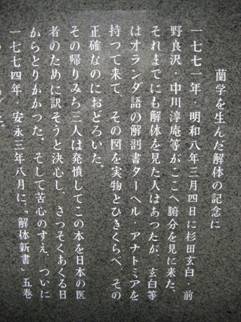 蘭学を生んだ解体の記念に
一七七一年・明和八年三月四日に杉田玄白　前
野良沢・中川淳庵等がここへ腑分を見に来た。
それまでにも解体を見た人はあつたが　玄白等
はオランダ語の解剖書ターヘル・アナトミアを
持つて来て、その図を実物とひきくらべ、その
正確なのにおどろいた。
その帰りみち三人は発憤してこの本を日本の医
者のために訳そうと決心し、さつそくあくる日
からとりかかつた。そして苦心のすえ、ついに
一七七四年・安永三年八月に、「解体新書」五巻